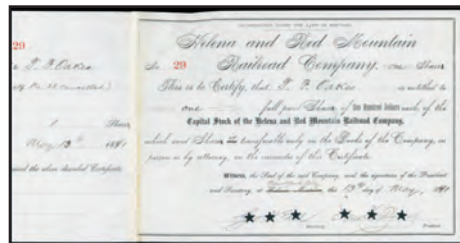 INCORPORATED UNDER THE LAWS OF MONTANA
29
T. F. Oakes
1 Share
May 13th 1891
received the above described Certificate
Helena and Red Mountain
No. 29 Railroad Company. one Share
This is to Certify, that T. F. Oakes is entitled to
one full paid Share of One Hundred Dollars each of the
Capital Stock of the Helena and Red Mountain Railroad Company,
which said Share is transferable only on the Books of the Company, in
person or by attorney, on the surrender of this Certificate.
Witness, the Seal of the said Company, and the signatures of the President
and Secretary, at the 13th day of May, 1891
Secretary President